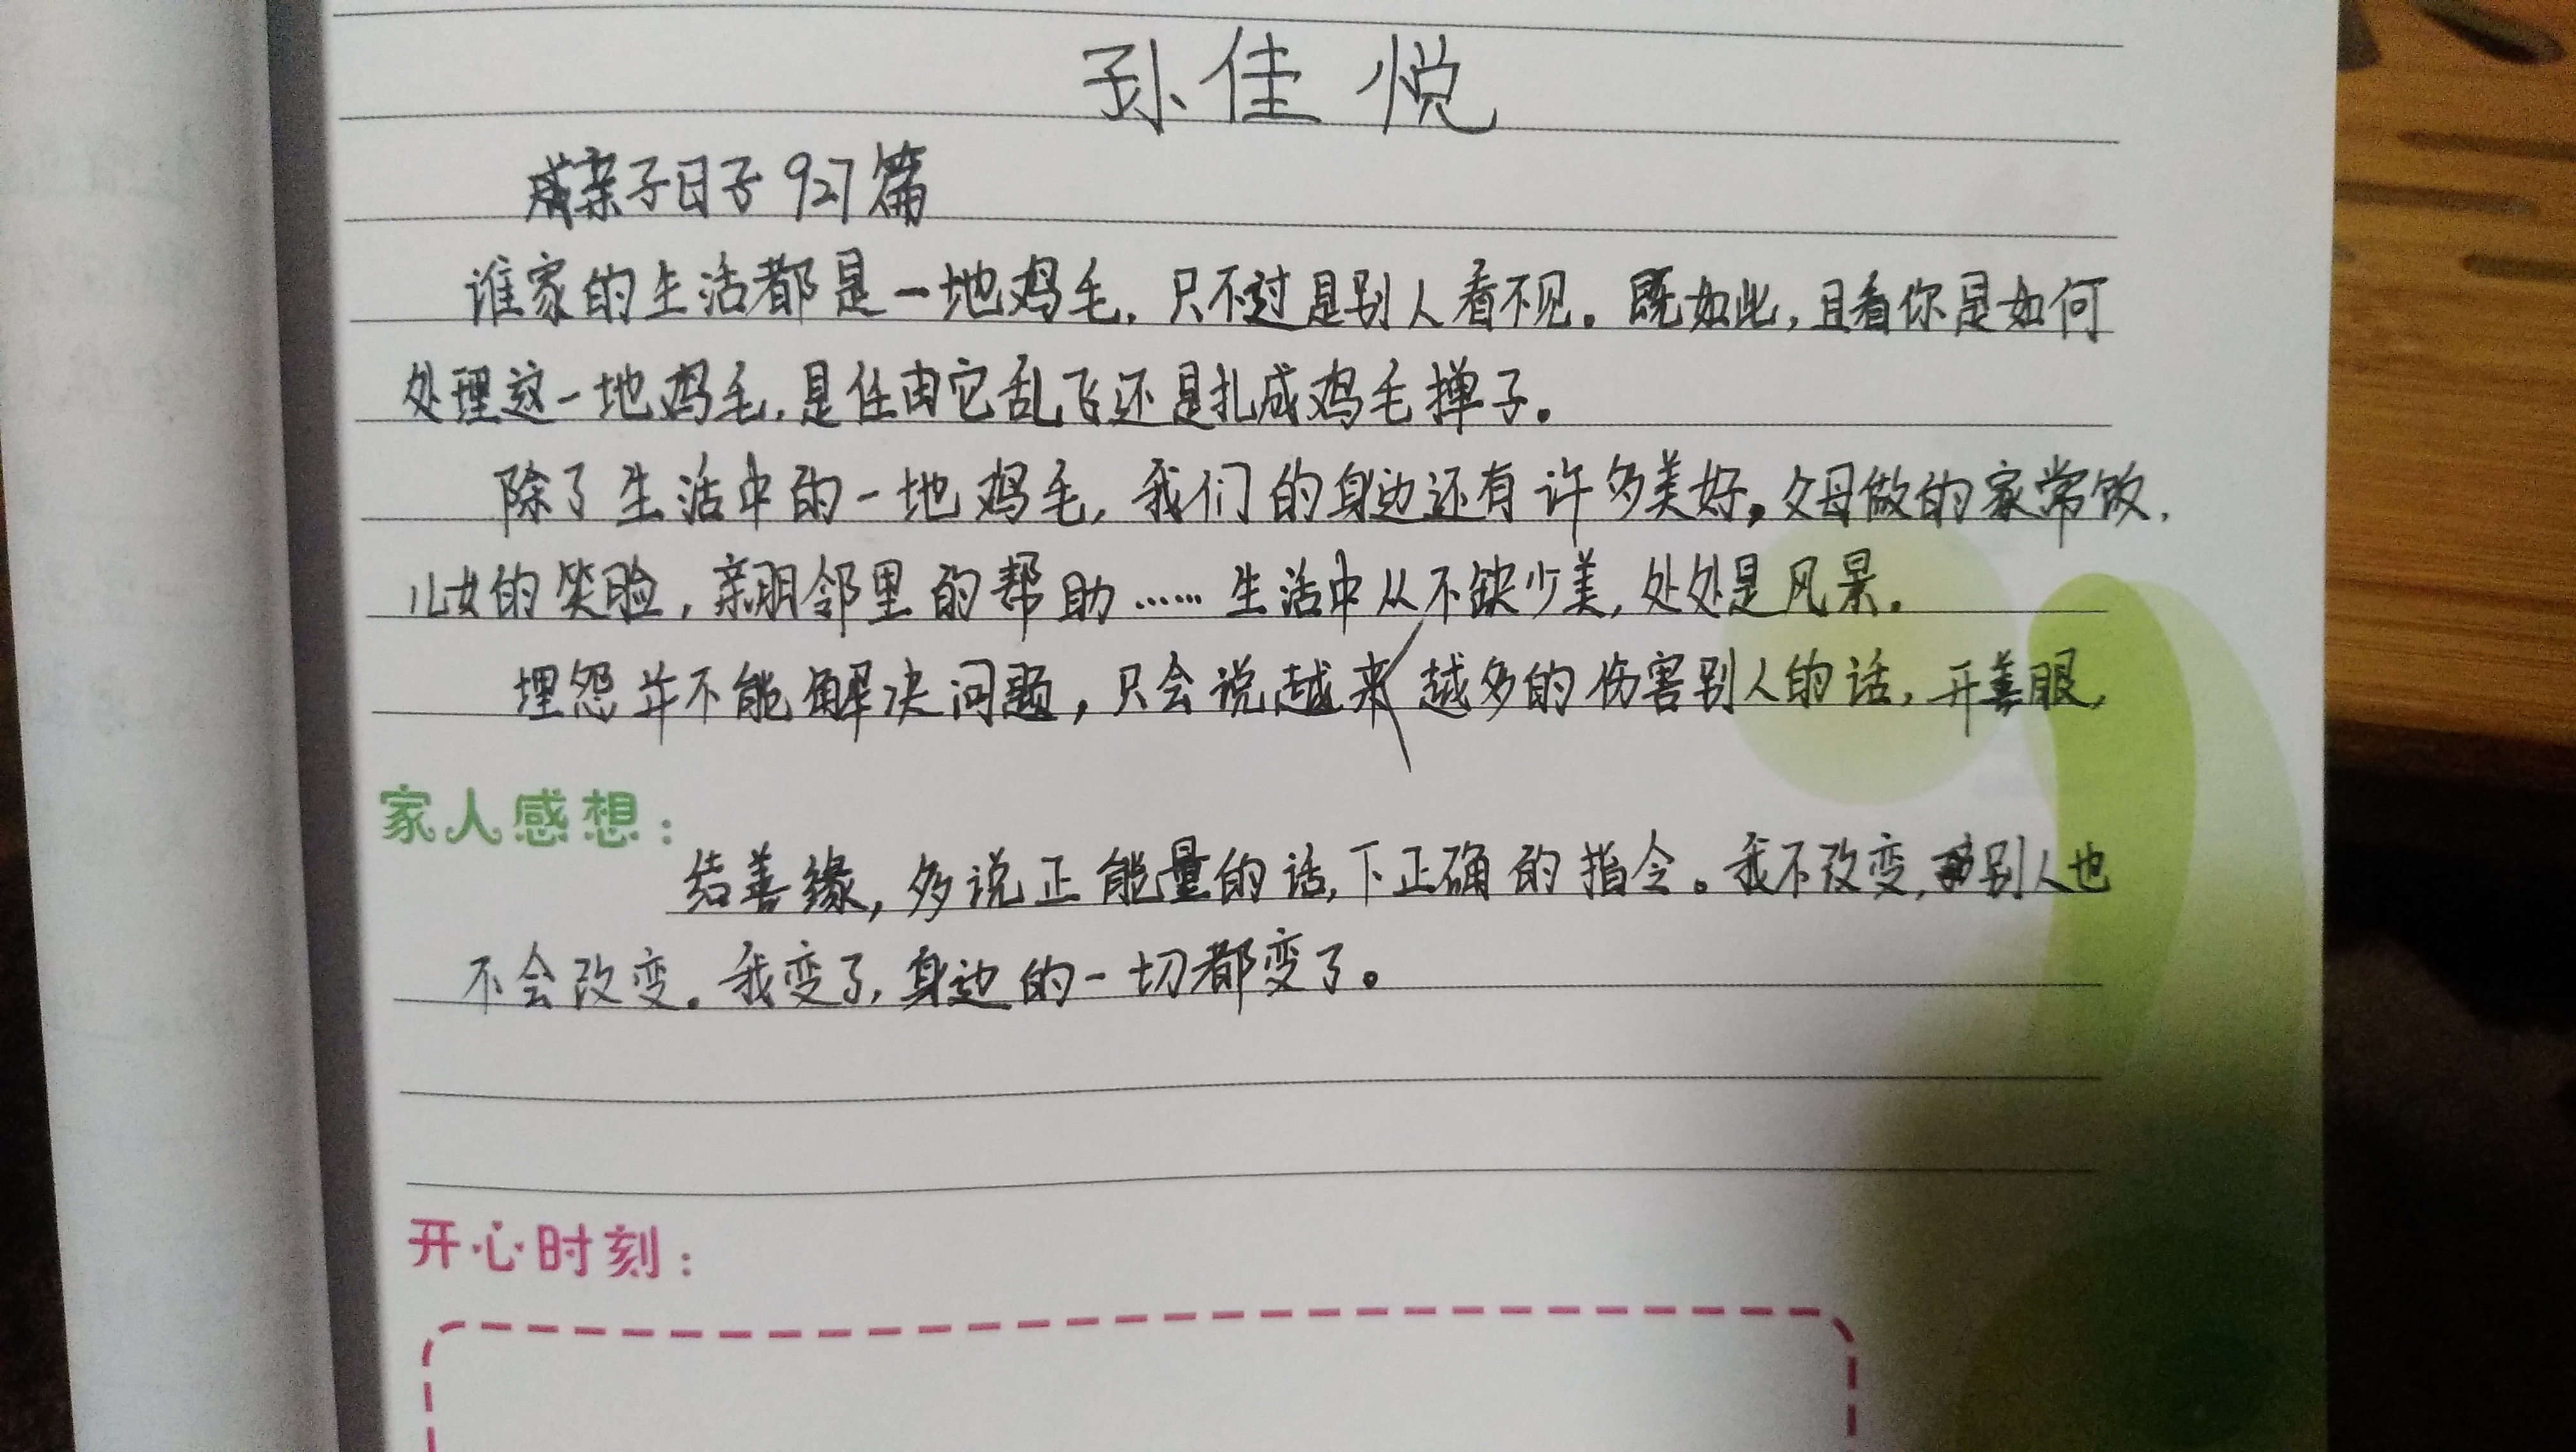 孙佳悦
亲子日子927篇
谁家的生活都是一地鸡毛，只不过是别人看不见。既如此，且看你是如何
处理这一地鸡毛，是任由它乱飞还是扎成鸡毛掸子。
除了生活中的一地鸡毛，我们的身边还有许多美好。父母做的家常饭，
儿女的笑脸，亲朋邻里的帮助……生活中从不缺少美，处处是风景。
埋怨并不能解决问题，只会说越来越多的伤害别人的话，开善眼，
家人感想：
结善缘，多说正能量的话，下正确的指令。我不改变，别人也
不会改变。我变了，身边的一切都变了。
开心时刻：